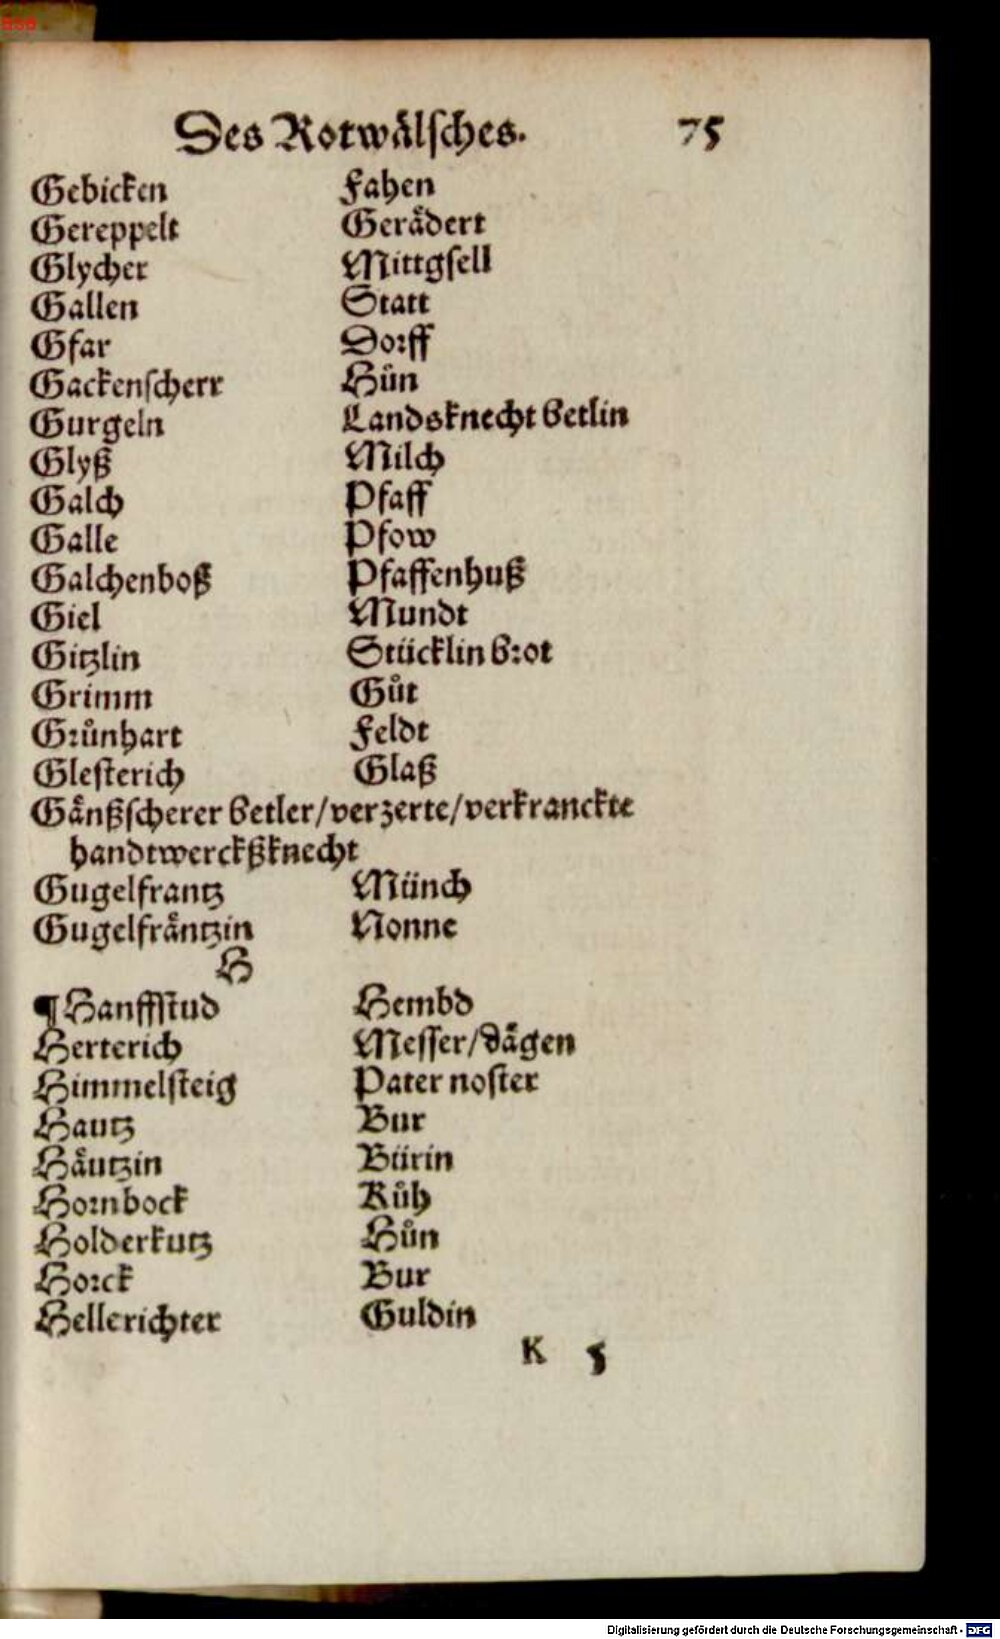 BSB
Des Rotwaͤlsches. 75
Gebicken Fahen
Gereppelt Geraͤdert
Glycher Mittgsell
Gallen Statt
Gfar Dorff
Gackenscherr Hůn
Gurgeln Landsknecht betlin
Glyß Milch
Galch Pfaff
Galle Pfow
Galchenboß Pfaffenhuß
Giel Mundt
Gitzlin Stücklin brot
Grimm Gůt
Grůnhart Feldt
Glesterich Glaß
Gaͤnßscherer betler/verzerte/verkranckte
handtwerckßknecht
Gugelfrantz Münch
Gugelfraͤntzin Nonne
H
¶ Hanffstud Hembd
Herterich Messer/daͤgen
Himmelsteig Pater noster
Hautz Bur
Haͤutzin Bürin
Hornbock Kůh
Holderkutz Hůn
Horck Bur
Hellerichter Guldin
K 5
Digitalisierung gefördert durch die Deutsche Forschungsgemeinschaft - DFG